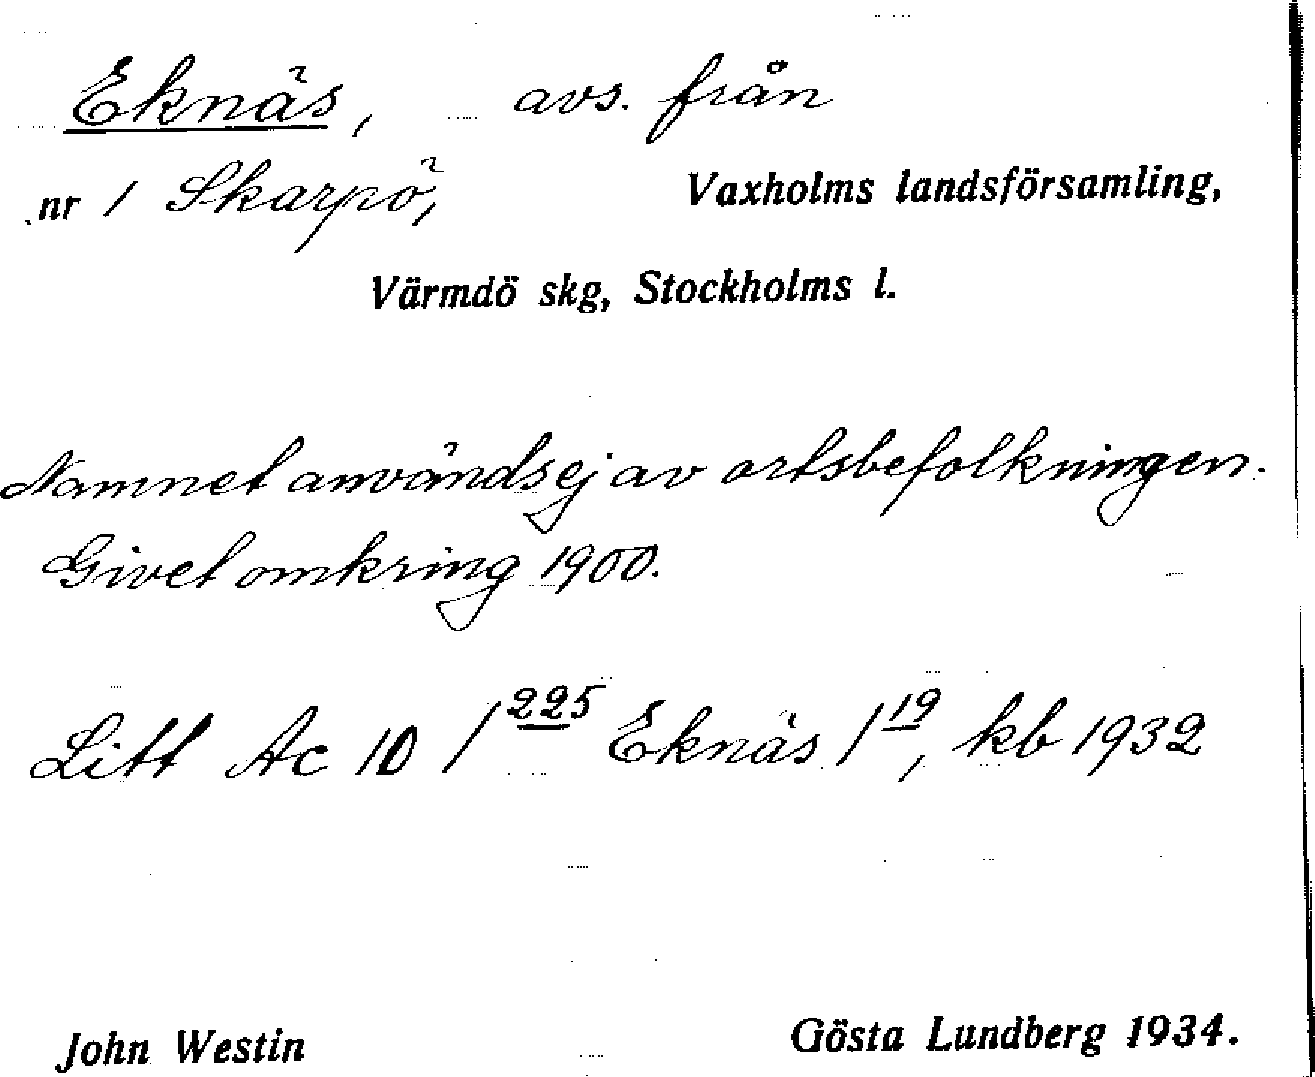 Eknäs, avs. från
nr 1 Skarpö, Vaxholms landsförsamling,
Värmdö skg, Stockholms l.
Namnet användsej av ortsbefolkningen.
Givet omkring 1900.
Litt Ac 10 1 225 Eknäs 1 19, kb 1932
John Westin Gösta Lundberg 1934.